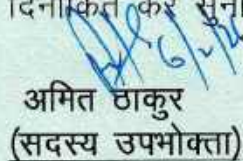 दिनांकित कर सुना
6/2/2
अमित ठाकुर
(सदस्य उपभोक्ता)